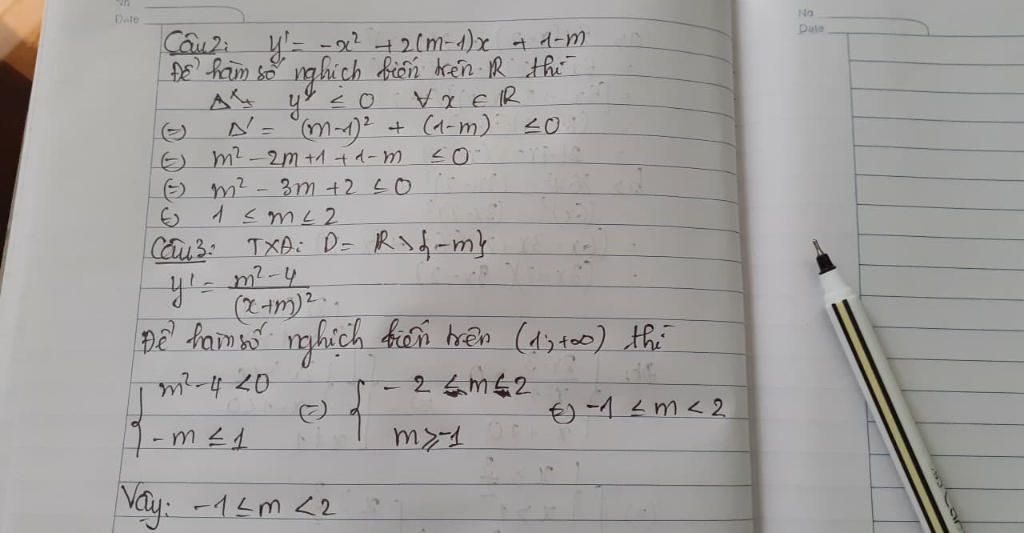 No
Date
Câu2: y' = -x² + 2(m-1)x + 1-m
Để hàm số nghịch biến trên R thì
y' ≤ 0 ∀ x ∈ R
(=) Δ' = (m-1)² + (1-m) ≤ 0
(=) m² - 2m + 1 + 1 - m ≤ 0
(=) m² - 3m + 2 ≤ 0
(=) 1 ≤ m ≤ 2
Câu3: TXĐ: D = R \ {-m}
y' = m² - 4 / (x+m)²
Để hàm số nghịch biến trên (1; +∞) thì
{ m² - 4 < 0 (=) { - 2 ≤ m ≤ 2 (=) -1 ≤ m < 2
- m ≤ 1 m ≥ -1
Vậy: -1 ≤ m < 2
No
Date